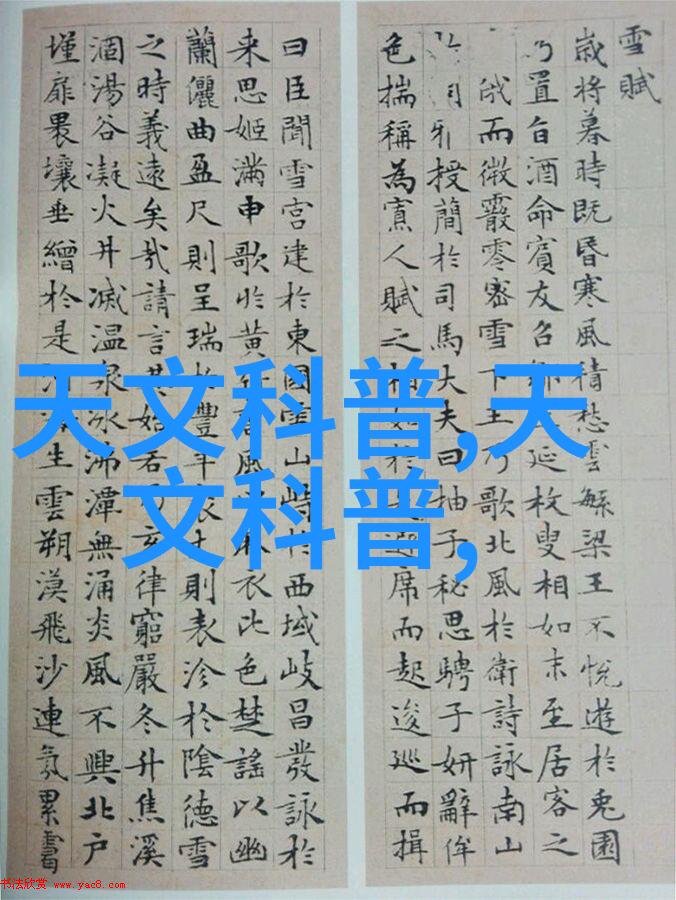 雪賦
歲將暮時既昏寒風積愁雲繁梁王不悅遊於兔園
乃置旨酒命賓友召延枚叟相如末至居客之
俄而微霰零密雪下王乃歌北風於衛詩詠南山
雅授簡於司馬大夫曰抽子秘思騁子妍辭侔
色揣稱為寡人賦之相如於避席而起逡巡而揖
曰臣聞雪宮建於東國雪山峙於西域岐昌發詠於
来思姬滿申歌於黃風麻衣比色楚謠以幽
蘭儷曲盈尺則呈瑞於豐年袤丈則表沴於陰德雪
之時義遠矣哉請言其始若乃玄律窮嚴冬升焦溪
涸湯谷凝火井滅温泉冰沸潭無涌炎風不興北户
墐扉裸壤垂繒於是河海生雲朔漠飛沙連氛累靄
天文科普,天
文科普,
书法欣赏 www.yac8.com